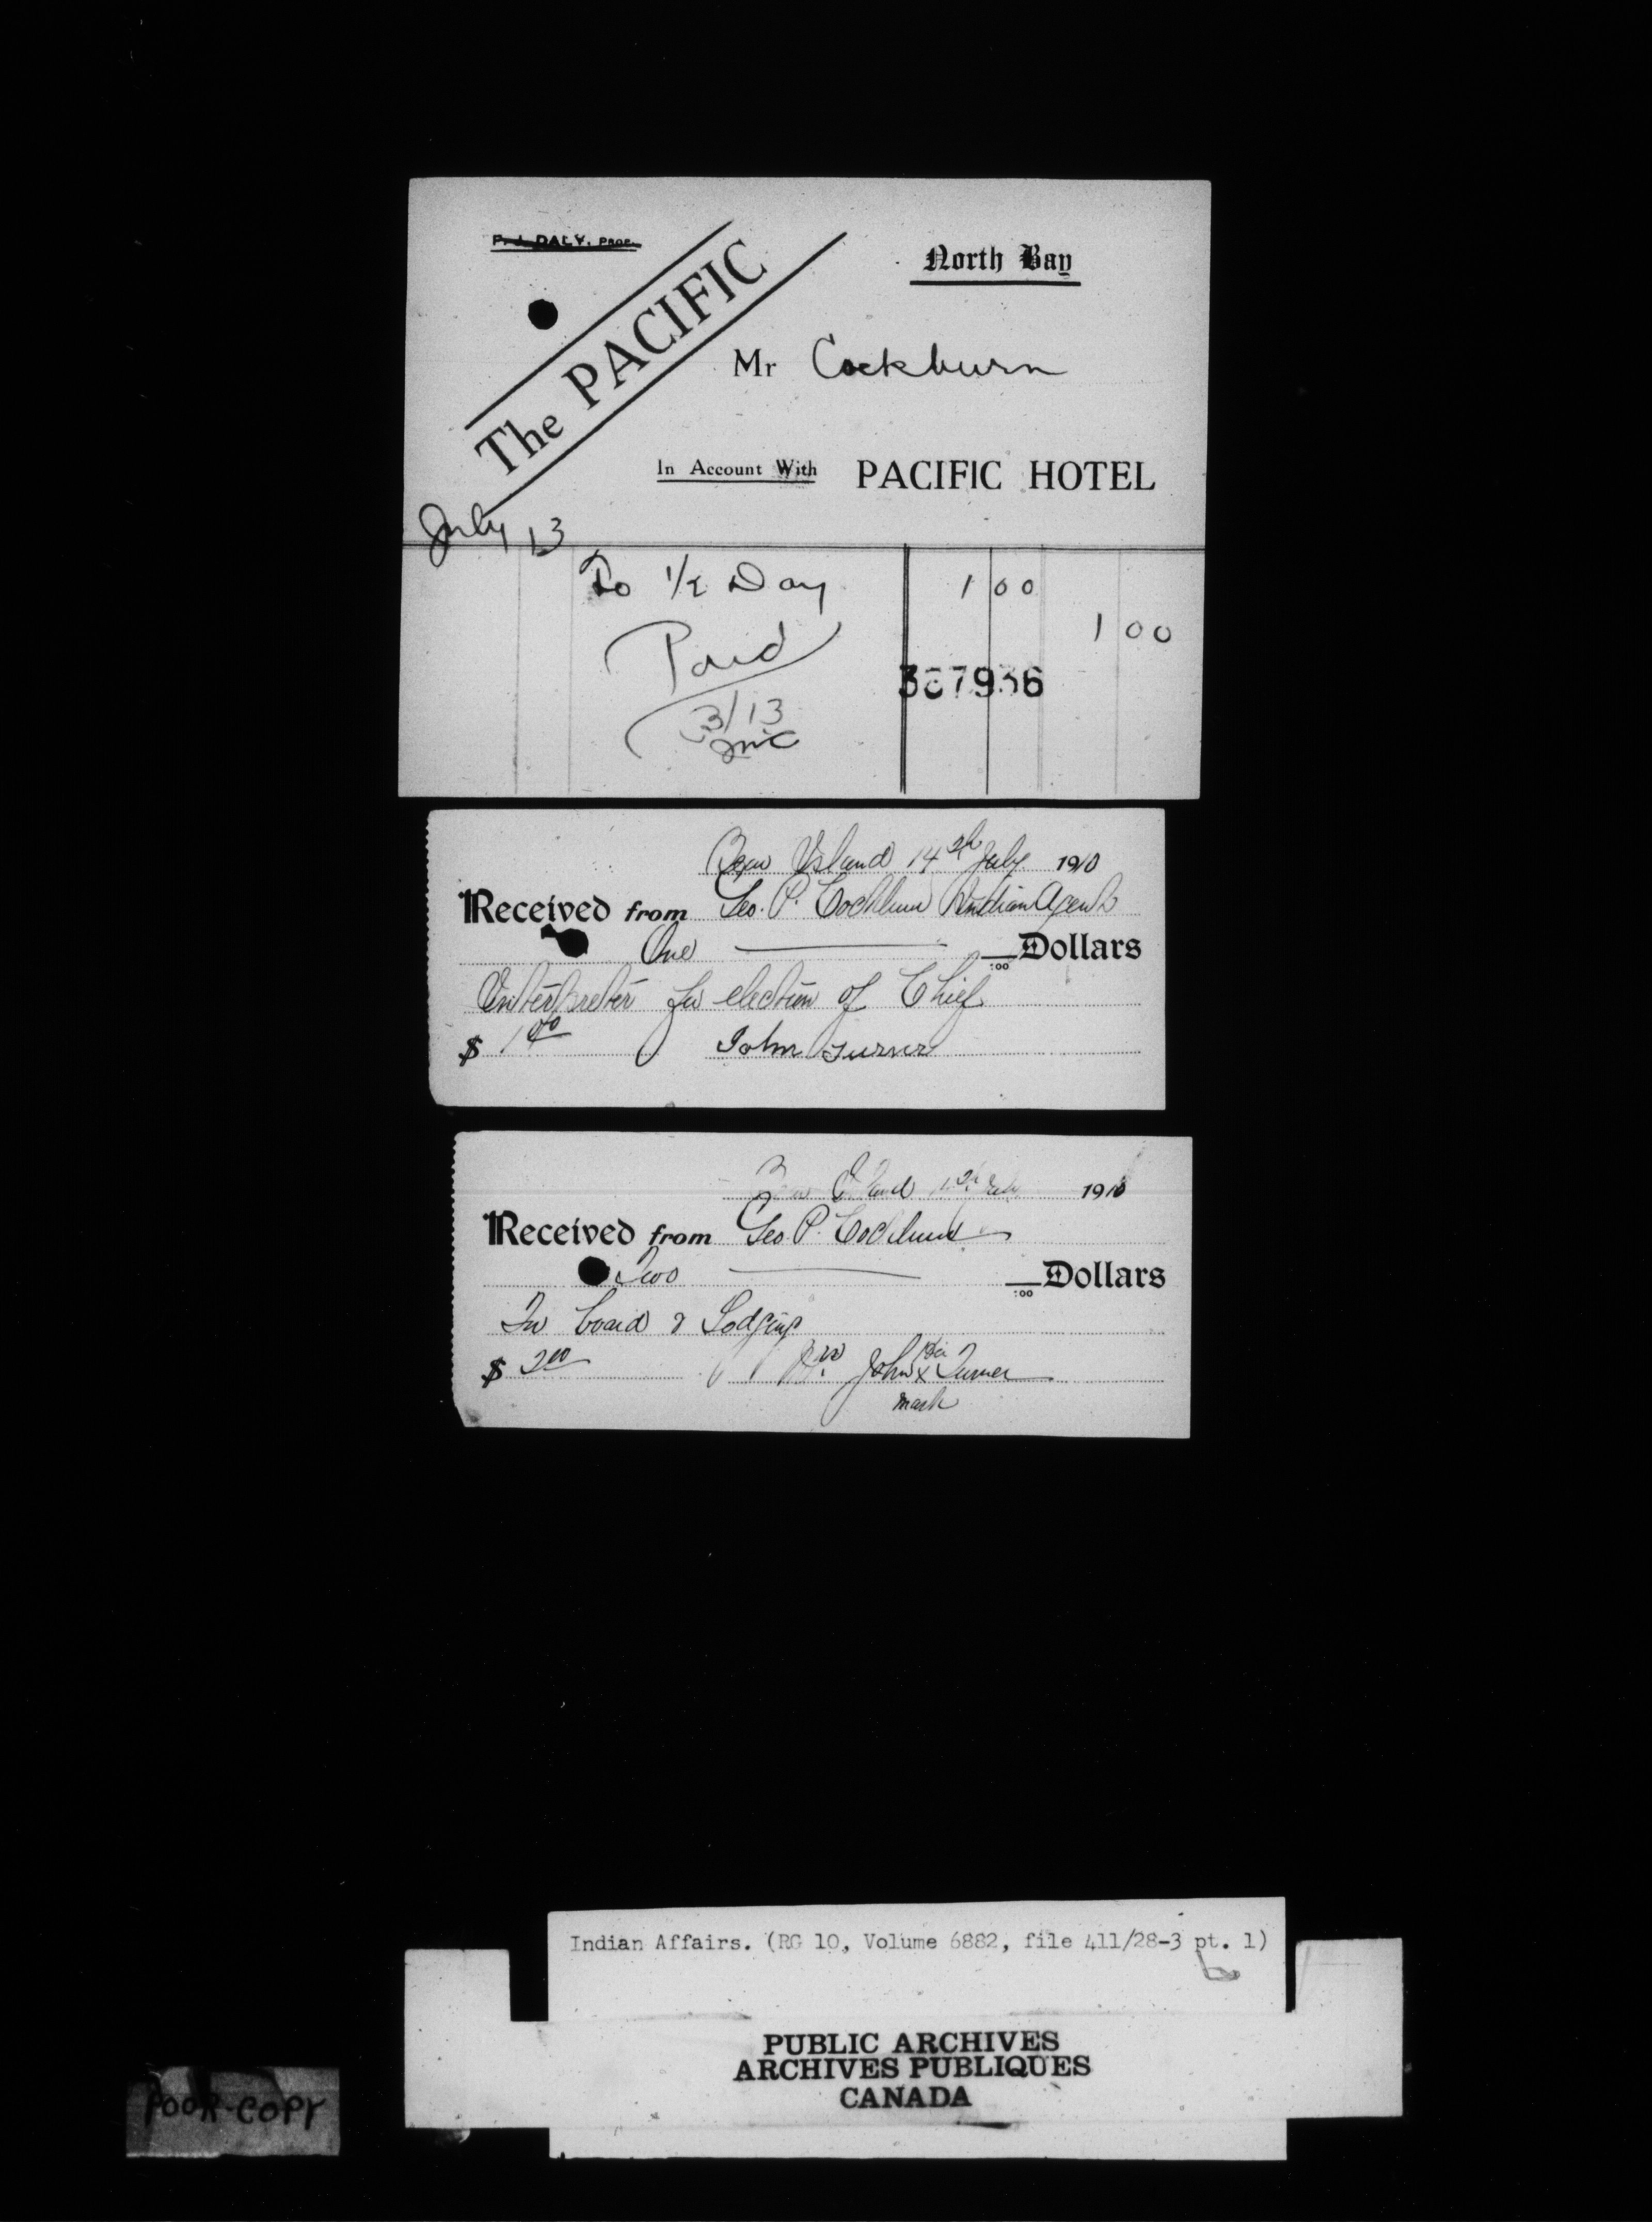 P. J. DALY, PROP.
North Bay
The PACIFIC
Mr Cockburn
In Account With PACIFIC HOTEL
July 13
To 1/2 Day 1 00
1 00
Paid
387936
3/13
Bear Island 14th July 1910
Received from Geo. P. Cockburn Indian Agent
One Dollars
:00
Interpreter for election of Chief
$ 1 00
John Turner
Bear Island July 1910
Received from Geo. P. Cockburn
Two Dollars
:00
For board & Lodging
$ 2 00 John his x Turner
mark
Indian Affairs. (RG 10, Volume 6882, file 411/28-3 pt. 1)
PUBLIC ARCHIVES
ARCHIVES PUBLIQUES
CANADA
POOR-COPY